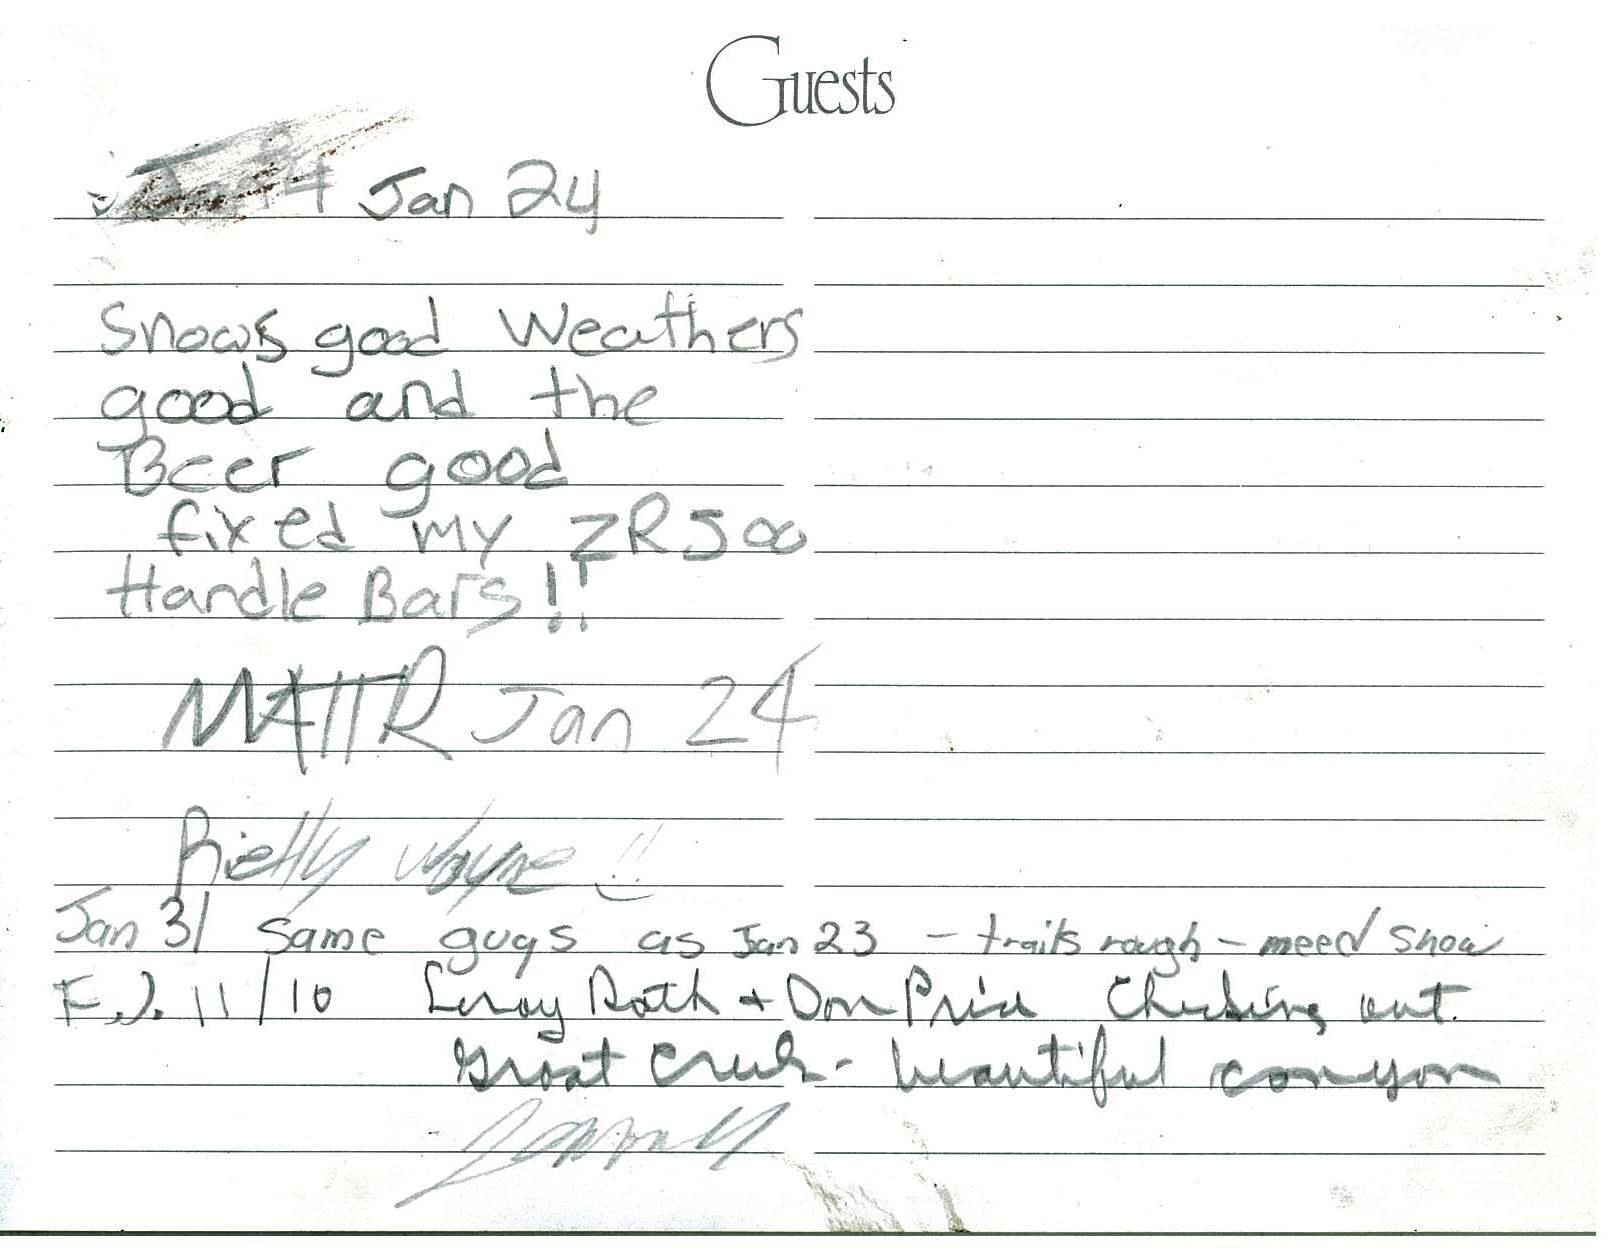 Guests
Jan 24
Snows good Weathers
good and the
Beer good
fixed my ZR500
Handle Bars!!
MATTR Jan 24
Wayne !!
Jan 31 same guys as Jan 23 - trails rough - need snow
11/10 Leroy Roth + Don Price Checking out.
Groat Creek - beautiful canyon